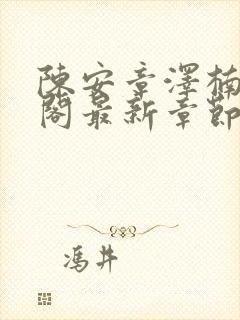 陳安章澤楠
閣最新章節
馮井